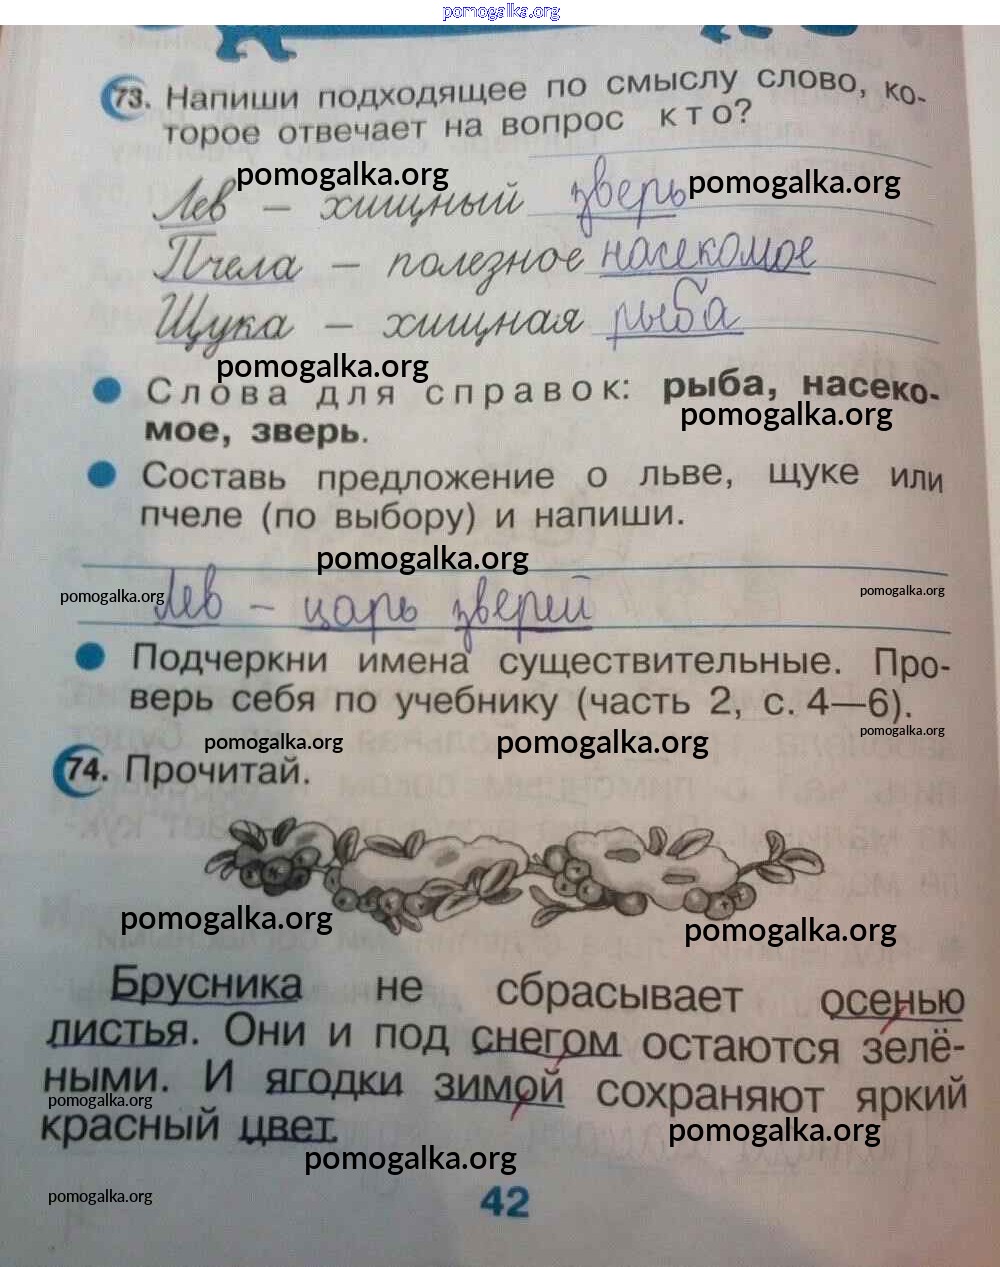 pomogalka.org
73. Напиши подходящее по смыслу слово, ко-
торое отвечает на вопрос кто?
pomogalka.org
pomogalka.org
Лев – хищный зверь
Пчела – полезное насекомое
Щука – хищная рыба
pomogalka.org
Слова для справок: рыба, насеко-
pomogalka.org
мое, зверь.
Составь предложение о льве, щуке или
пчеле (по выбору) и напиши.
pomogalka.org
pomogalka.org
pomogalka.org
Лев – царь зверей
Подчеркни имена существительные. Про-
верь себя по учебнику (часть 2, с. 4—6).
pomogalka.org
pomogalka.org
pomogalka.org
74. Прочитай.
pomogalka.org
pomogalka.org
Брусника не сбрасывает осенью
листья. Они и под снегом остаются зелё-
ными. И ягодки зимой сохраняют яркий
pomogalka.org
красный цвет.
pomogalka.org
pomogalka.org
pomogalka.org
42